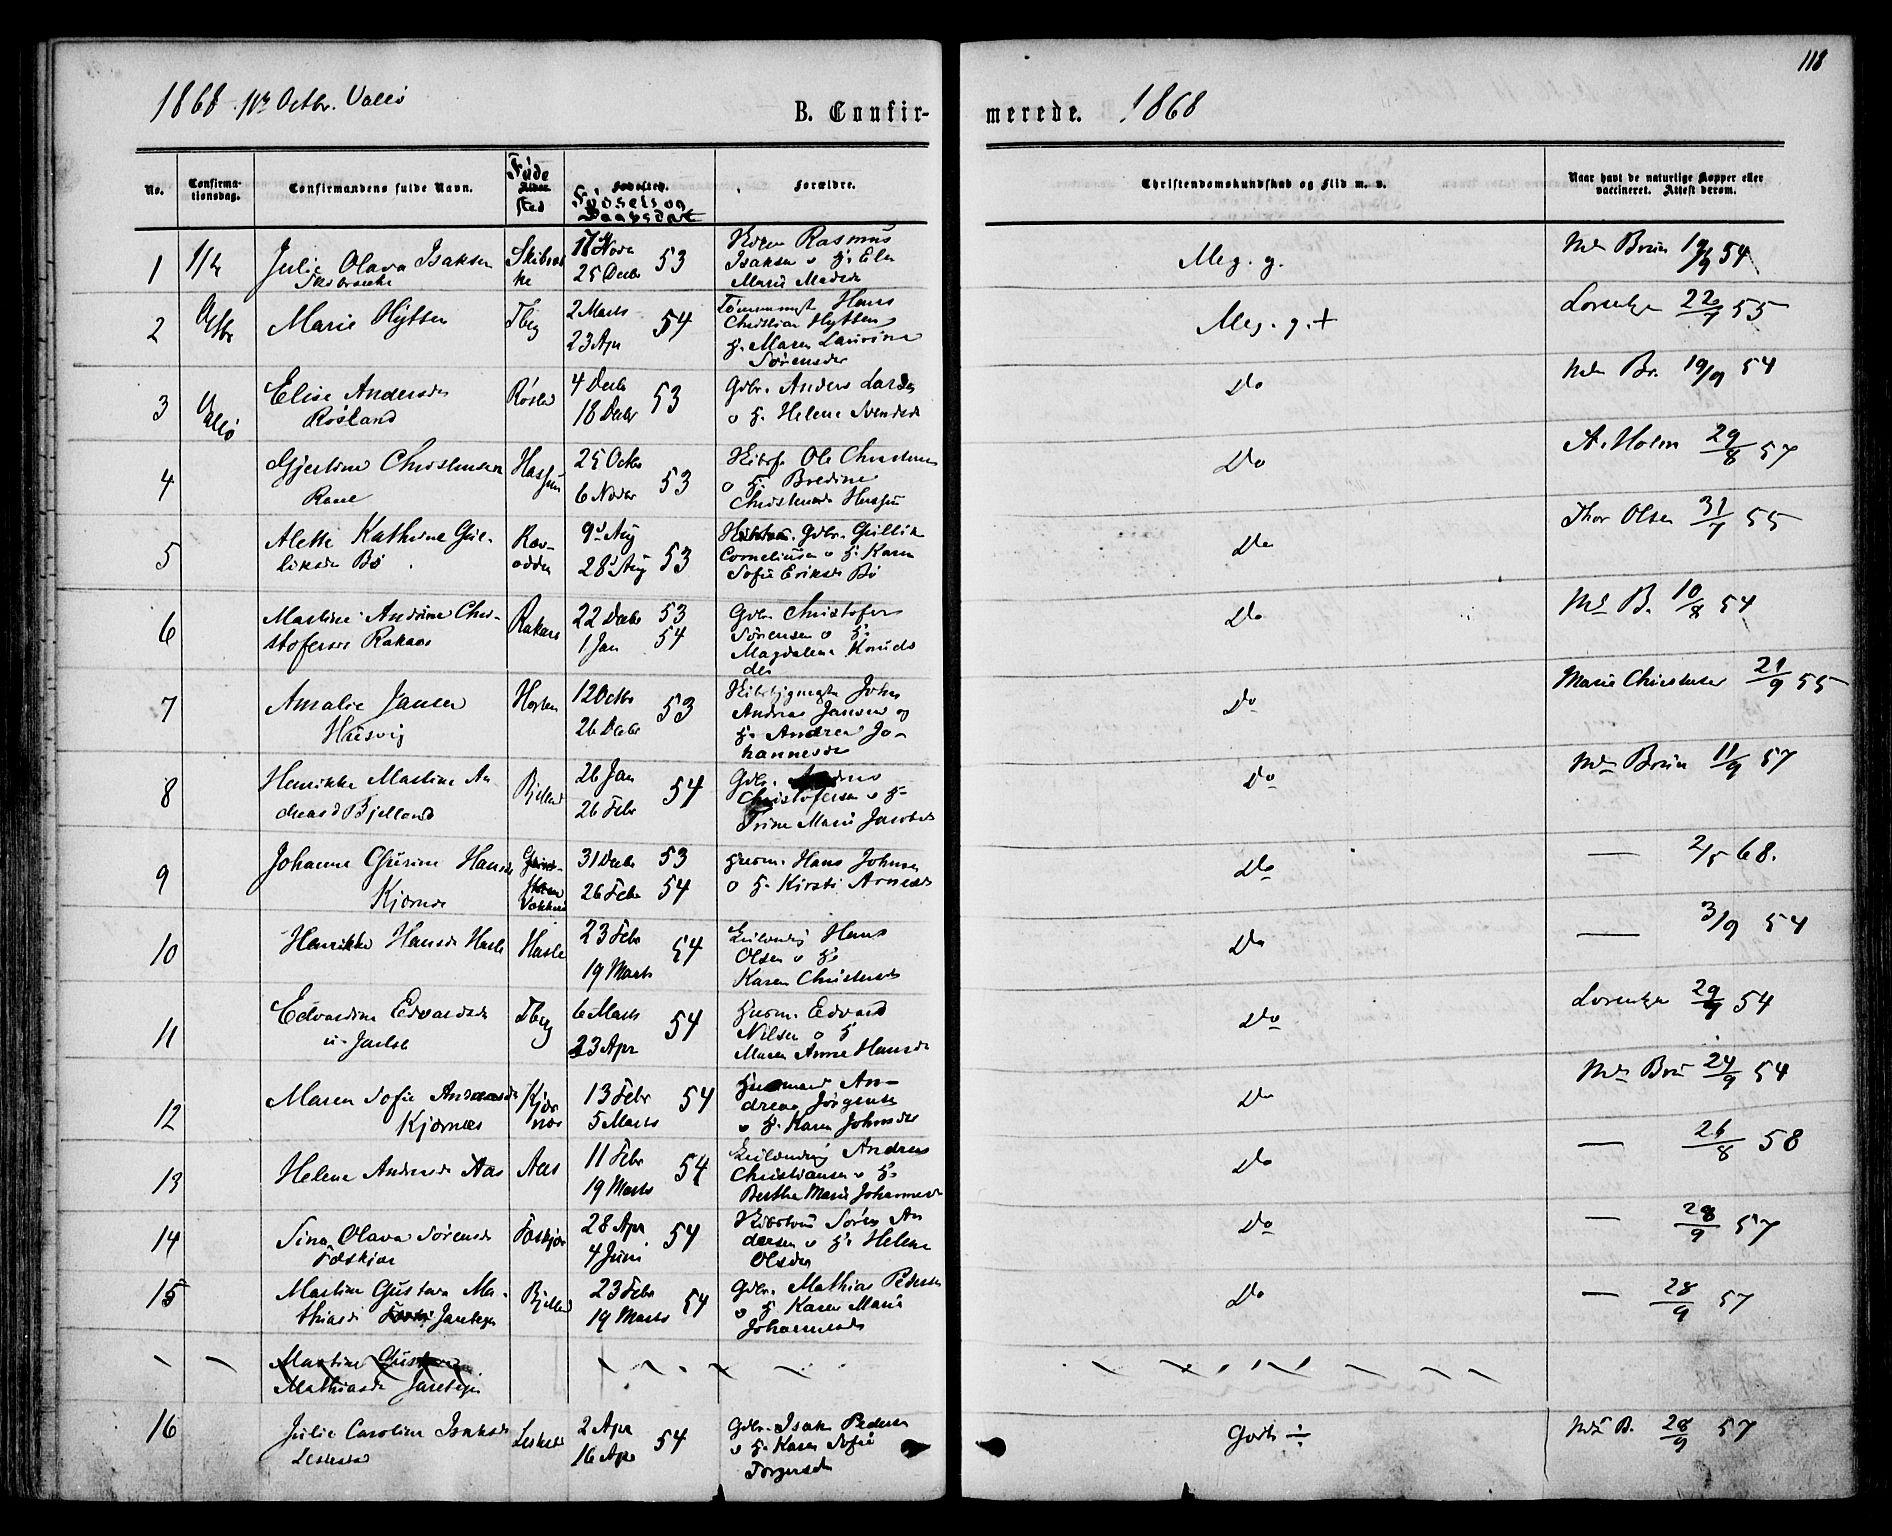 1868 11te Octbr. Vallø
B. Confir-
merede. 1868
118
No.
Confirma-
tionsdag.
Confirmandens fulde Navn.
Føde
sted
Fødsels og
Daabsdat
Forældre.
Christendomskundskab og Flid m. v.
Naar havt de naturlige Kopper eller
vaccineret. Attest derom.
1
Julie Olava Isaksen
25 Decbr 53
Rasmus
Isaksen o h: Elen
Marie
Meg. g.
Brun 19/9 54
2
Marie Hytten
Tbrg
2 Marts
23 Apr 54
Hans
Christian Hytten
h. Maren Laurine
Sørensdr
Meg. g. +
Lorentzen 22/7 55
3
Elise Andersdr
Røsland
4 Decbr
18 Decbr 53
Gdbr. Anders Larsen
o h. Helene Svendsdr
Do
Br. 19/9 54
4
Gjertine Christensen
Rane
25 Octbr
6 Novbr 53
Ole Christensen
o h. Bredine
Do
A. Holm 29/8 57
5
Alette Kathrine Gul-
liksdr Bø
Rav-
odden
9 Aug
28 Aug 53
Gdbr. Gullik
Corneliusen o h. Karen
Sofie Eriksdr Bø
Do
Thor Olsen 31/7 55
6
Martine Andrine Chri-
stofersdr Rakaas
Rakaas
22 Decbr 53
1 Jan 54
Gdbr Christofer
Sørensen o h.
Magdalene Knuds
dr
Do
B. 10/8 54
7
Amalie Jansen
Husvig
Horten
12 Octbr
26 Decbr 53
John
Andreas Jansen og
h. Andrea Jo-
hannesdr
Do
Marie Christensen 21/9 55
8
Henrikke Martine An
dreasd Bjelland
Bjelland
26 Jan
26 Febr 54
Gdbr.
Christofersen o h.
Trine Marie Jacobsdr
Do
Brun 11/9 57
9
Johanne Gusine Hansdr
Kjærnæs
31 Decbr 53
26 Febr 54
Husm. Hans Johnsen
o h. Kirsti Arnesdr
Do
— 2/5 68.
10
Henrikke Hansdr Hasle
Hasle
23 Febr
19 Marts 54
Hans
Olsen o h:
Karen Christensdr
Do
— 3/9 54
11
Edvardine Edvardsdr
Tbrg
6 Marts
23 Apr 54
Husm. Edvard
Nilsen o h
Maren Anne Hansdr
Do
Lorentzen 29/9 54
12
Maren Sofie Andreasdr
Kjærnæs
Kjær
næs
13 Febr
5 Marts 54
Husmand An-
dreas Jørgensen
o h. Karen Johnsdr
Do
24/9 54
13
Helene Andersdr Aas
Aas
11 Febr
19 Marts 54
Andreas
Christiansen o h:
Berthe Marie Johannesdr
Do
— 26/8 58
14
Sina Olava Sørensdr
Foskjær
28 Apr
4 Juni 54
Søren An
dersen o h: Helene
Olsdr
Do
— 28/9 57
15
Martine Gustava Ma-
thiasdr Jareteigen
Bjelland
23 Febr
19 Marts 54
Gdbr. Mathias Pedersen
o h Karen Marie
Johannesdr
Do
— 28/9 57
Martine Gustava
Mathiasdr Jareteigen
16
Julie Caroline Isaksdr
2 Apr
16 Apr 54
Gdbr. Isak Pedersen
o h. Karen Sofie
Torgersdr
Godt ÷
B. 28/9 57